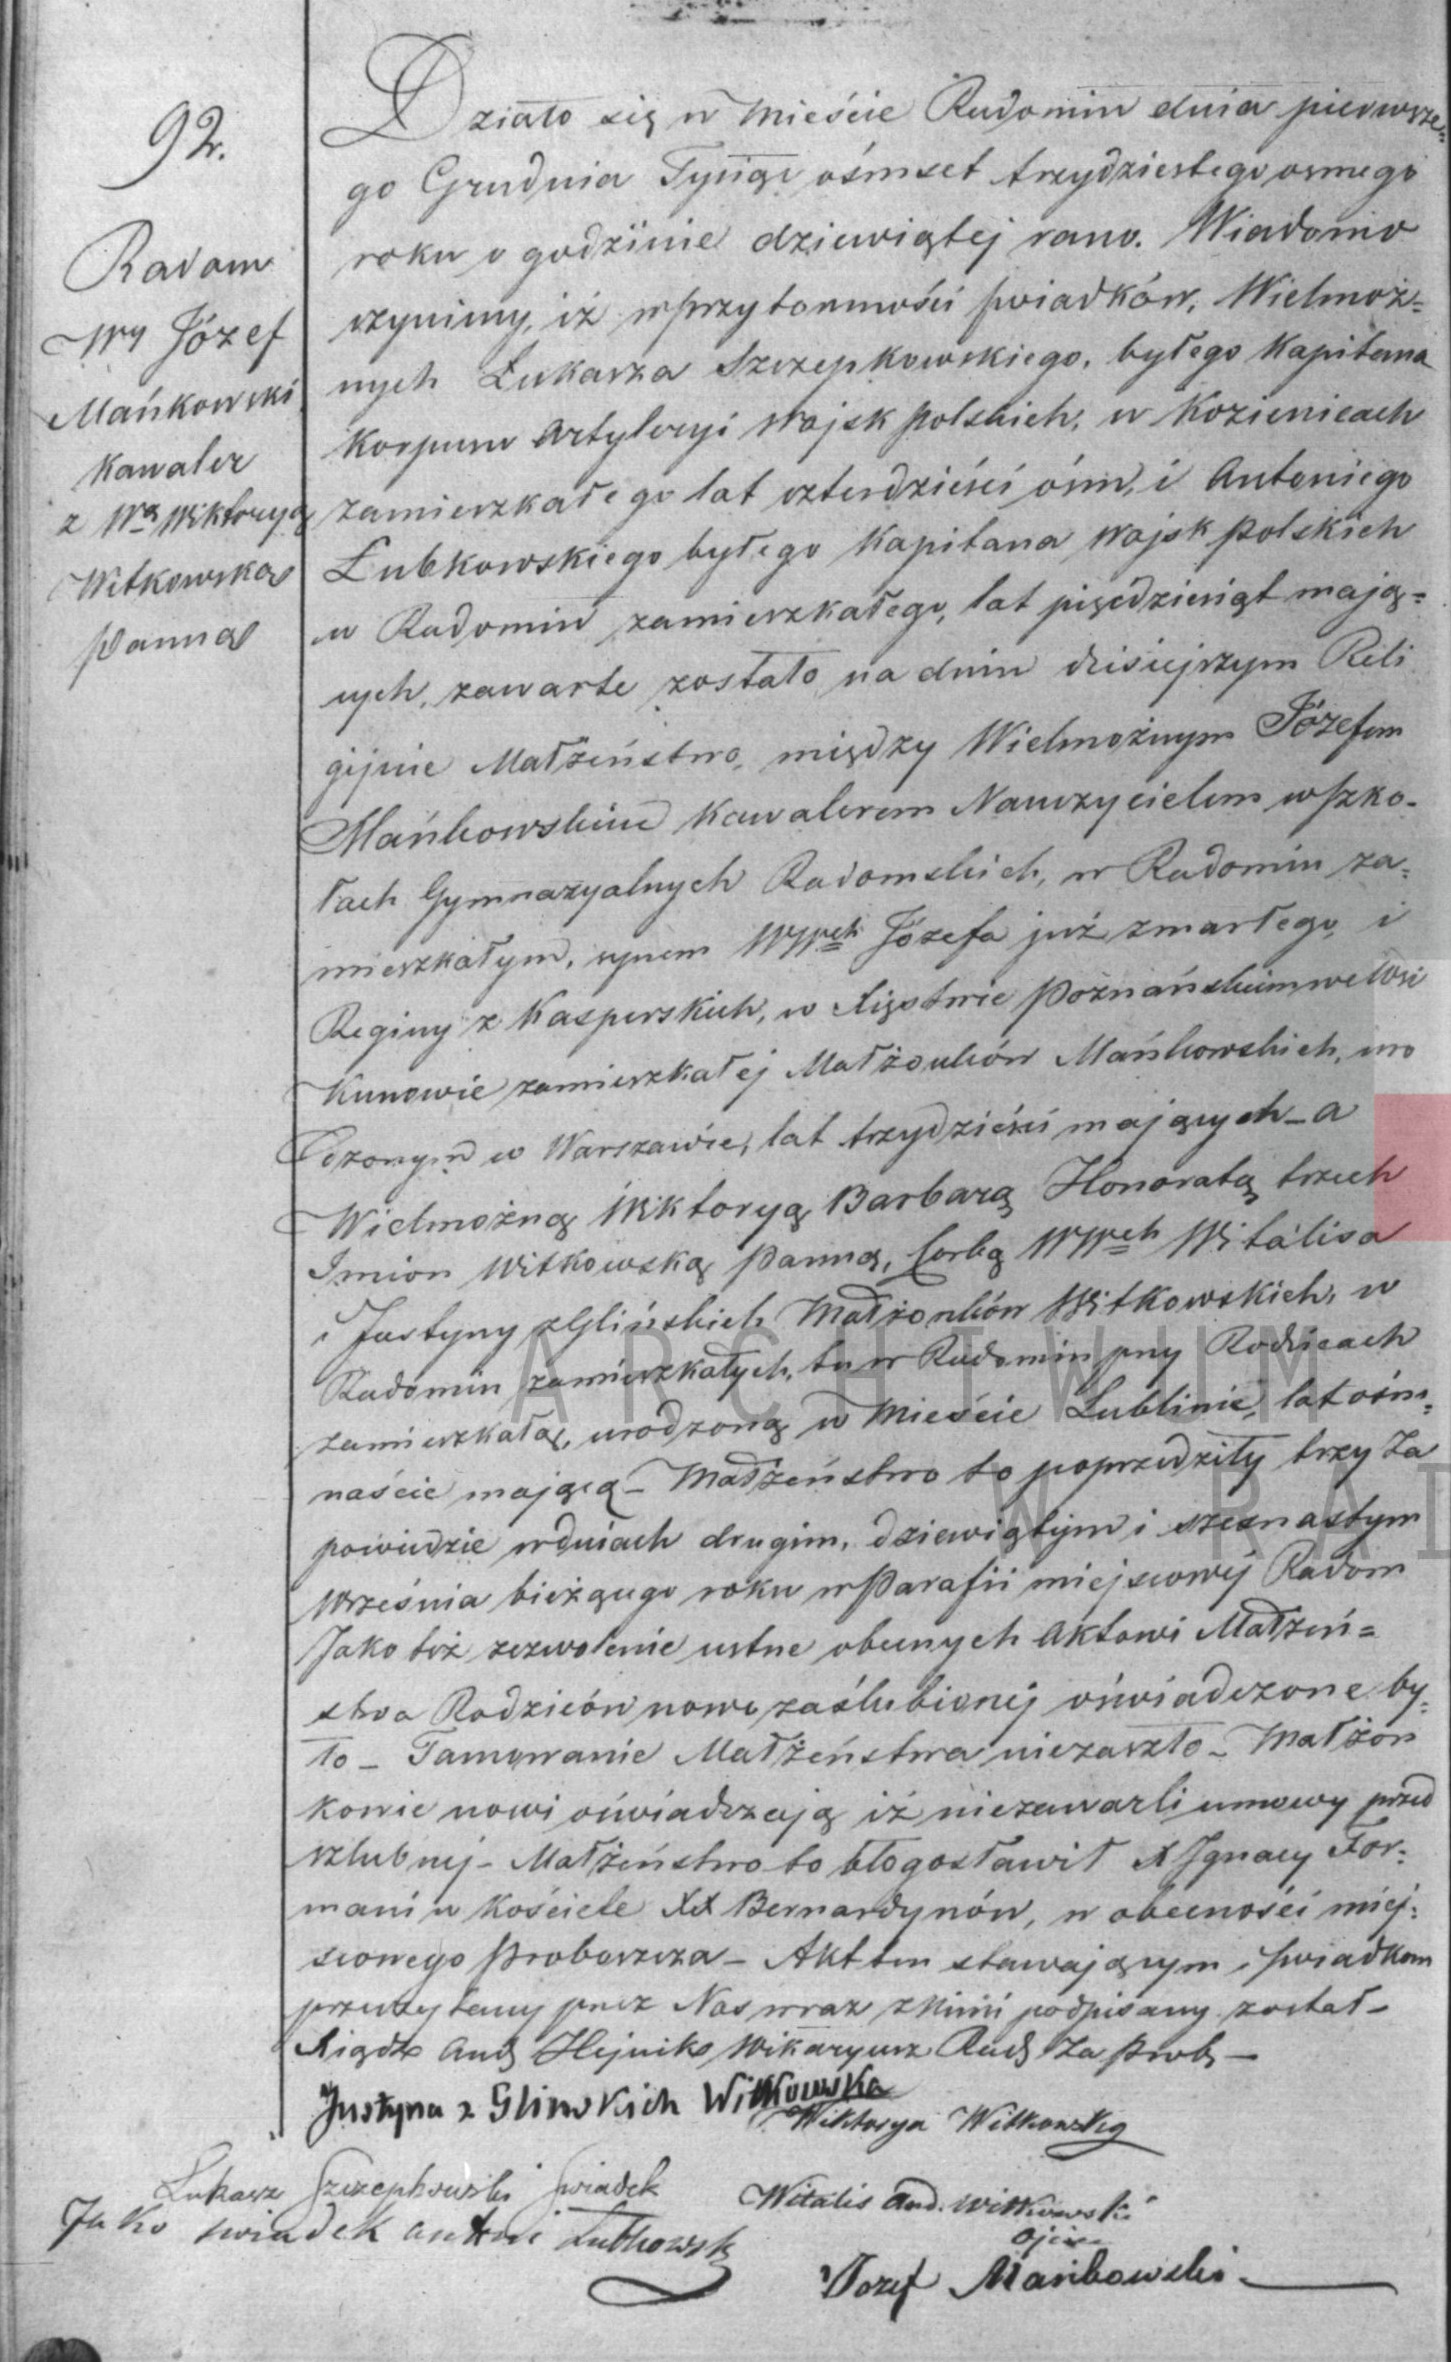 92.
Radom
Wy Józef
Mańkowski
Kawaler
z Wą Wiktoryą
Witkowską
Panną
Działo się w Mieście Radomiu dnia pierwsze-
go Grudnia Tysiąc ośmset trzydziestego osmego
roku o godzinie dziewiątej rano. Wiadomo
czynimy, iż w przytomności świadków, Wielmoż-
nych Łukasza Szczepkowskiego, byłego Kapitana
Korpusu Artyleryi Wojsk Polskich, w Kozienicach
zamieszkałego lat czterdzieści ośm, i Antoniego
Łubkowskiego byłego Kapitana Wojsk Polskich
w Radomiu zamieszkałego, lat pięćdziesiąt mają=
cych, zawarte zostało na dniu dzisiejszym Reli
gijnie Małżeństwo, między Wielmożnym Józefem
Mańkowskim Kawalerem Nauczycielem w Szko-
łach Gymnazyalnych Radomskich, w Radomiu za=
mieszkałym, synem WWch Józefa już zmarłego, i
Reginy z Kasperskich, w Xięstwie Poznańskim we Wsi
Kunowie zamieszkałej Małżonków Mańkowskich, uro
dzonym w Warszawie, lat trzydzieści mających – a
Wielmożną Wiktoryą Barbarą Honoratą trzech
Imion Witkowską Panną, Corką WWch Witalisa
i Justyny z Glińskich Małżonków Witkowskich, w
Radomiu zamieszkałych, tu w Radomiu przy Rodzicach
zamieszkałą, urodzoną w Mieście Lublinie, lat ośm=
naście mającą – Małżeństwo to poprzedziły trzy Za
powiedzie w dniach drugim, dziewiątym i szesnastym
Września bieżącego roku w Parafii miejscowej Radom
Jako też zezwolenie ustne obecnych Aktowi Małżeń=
stwa Rodziców nowo zaślubionej oświadczone by=
ło – Tamowanie Małżeństwa niezaszło – Małżon
kowie nowi oświadczają iż niezawarli umowy przed
szlubnej – Małżeństwo to błogosławił X Ignacy For=
mani w Kościele XX Bernardynów, w obecności miej=
scowego Proboszcza – Akt ten stawającym i świadkom
przeczytany przez Nas wraz z Nimi podpisany został –
Xiądz And Hejnik Wikaryusz Rad Za Prob –
Justyna z Glinskich Witkowska
Wiktorya Witkowska
Łukasz Szczepkowski świadek
Witalis And. Witkowski
ojciec
Jako swiadek Antoni Łubkowski
Jozef Mańkowski
ARCHIWUM
W RAD